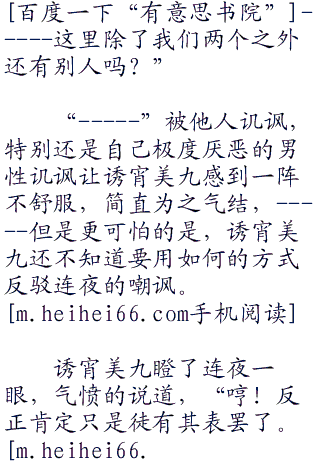 [百度一下“有意思书院”]-
----这里除了我们两个之外
还有别人吗？”
“-----”被他人讥讽，
特别还是自己极度厌恶的男
性讥讽让诱宵美九感到一阵
不舒服，简直为之气结，---
--但是更可怕的是，诱宵美
九还不知道要用如何的方式
反驳连夜的嘲讽。
[m.heihei66.com手机阅读]
诱宵美九瞪了连夜一
眼，气愤的说道，“哼！反
正肯定只是徒有其表罢了。
[m.heihei66.